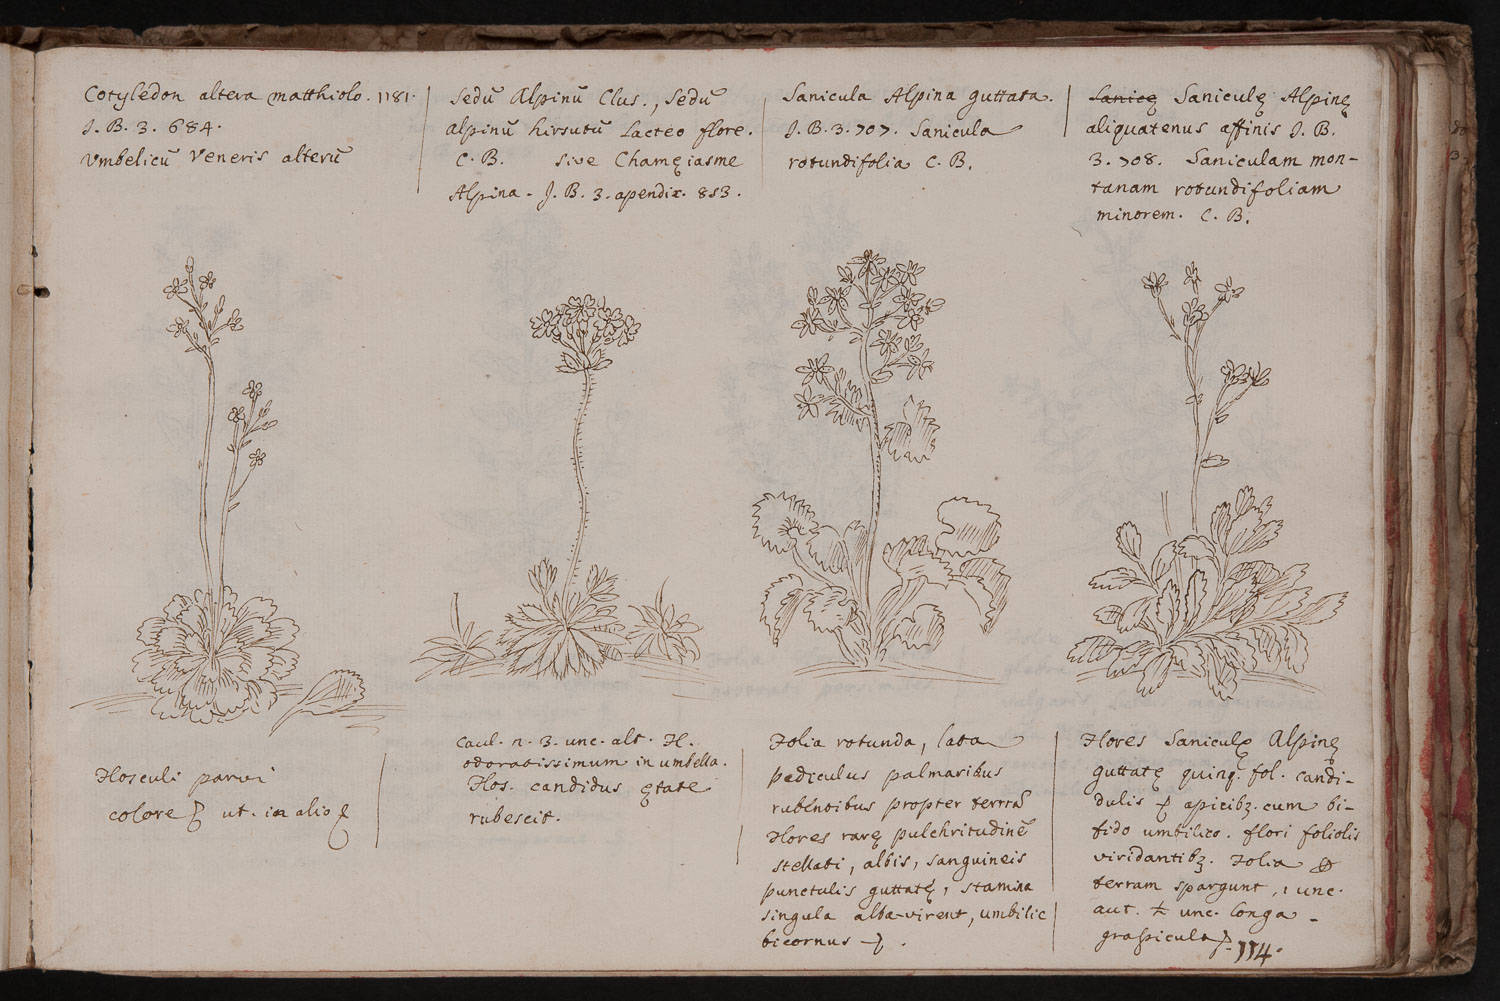 Cotyledon altera matthiolo. 1181.
J. B. 3. 684.
Vmbelicū Veneris alterū
Sedū Alpinū Clus., Sedū
alpinū hirsutū lacteo flore.
C. B. sive Chamęiasme
Alpina - J. B. 3. apendix. 853.
Sanicula Alpina guttata.
J. B. 3. 707. Sanicula
rotundifolia C. B.
Saniculę Alpinę
aliquatenus affinis J. B.
3. 708. Saniculam mon-
tanam rotundifoliam
minorem. C. B.
Flosculi parvi
colore ut. in alio
Caul. n. 3. unc. alt. Fl.
odoratissimum in umbella.
Flos. candidus ętate
rubescit.
Folia rotunda, lata
pediculus palmaribus
rubentibus propter terrā
Flores rarę pulchritudinē
stellati, albis, sanguineis
punctulis guttatę, stamina
singula alba-virent, umbilic
bicornus
Flores Saniculę Alpinę
guttatę quinq. fol. candi-
dulis apicibꝫ. cum bi-
fido umbilico. flori foliolis
viridantibꝫ. Folia
terram spargunt, 1 unc.
aut. unc. longa -
114.